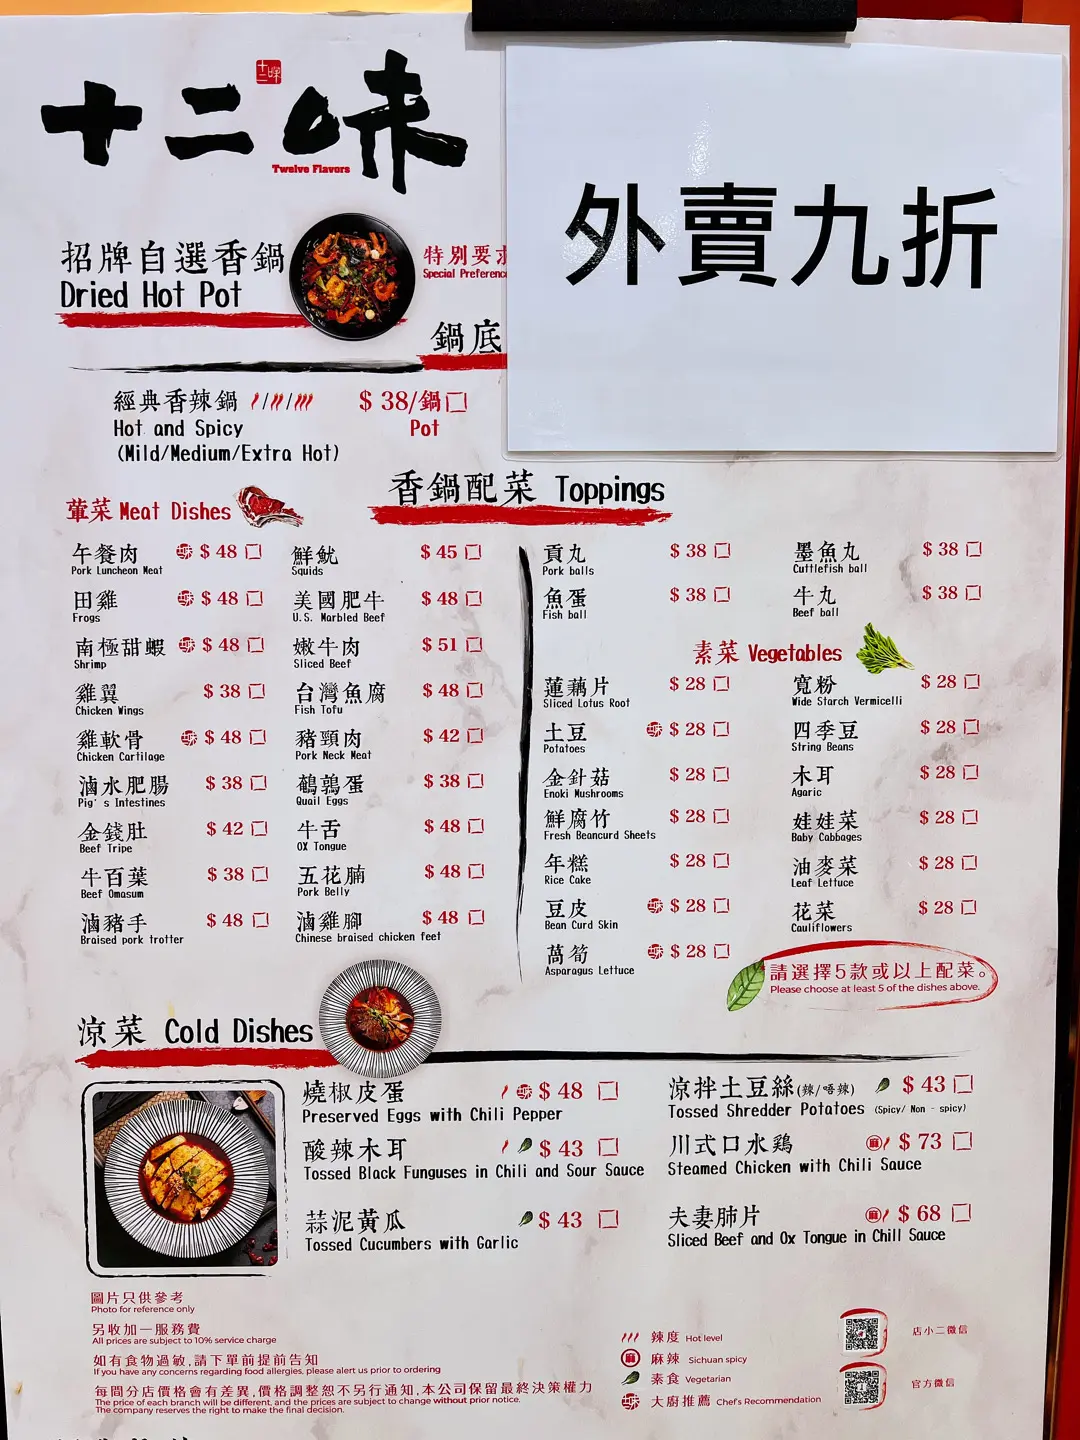 十二味
十二味
Twelve Flavors
外賣九折
招牌自選香鍋
Dried Hot Pot
特別要求
Special Preference
鍋底
經典香辣鍋 / / $ 38/鍋
Hot and Spicy Pot
(Mild/Medium/Extra Hot)
香鍋配菜 Toppings
葷菜 Meat Dishes
午餐肉 $ 48
Pork Luncheon Meat
田雞 $ 48
Frogs
南極甜蝦 $ 48
Shrimp
雞翼 $ 38
Chicken Wings
雞軟骨 $ 48
Chicken Cartilage
滷水肥腸 $ 38
Pig's Intestines
金錢肚 $ 42
Beef Tripe
牛百葉 $ 38
Beef Omasum
滷豬手 $ 48
Braised pork trotter
鮮魷 $ 45
Squids
美國肥牛 $ 48
U.S. Marbled Beef
嫩牛肉 $ 51
Sliced Beef
台灣魚腐 $ 48
Fish Tofu
豬頸肉 $ 42
Pork Neck Meat
鵪鶉蛋 $ 38
Quail Eggs
牛舌 $ 48
OX Tongue
五花腩 $ 48
Pork Belly
滷雞腳 $ 48
Chinese braised chicken feet
貢丸 $ 38
Pork balls
魚蛋 $ 38
Fish ball
墨魚丸 $ 38
Cuttlefish ball
牛丸 $ 38
Beef ball
素菜 Vegetables
蓮藕片 $ 28
Sliced Lotus Root
土豆 $ 28
Potatoes
金針菇 $ 28
Enoki Mushrooms
鮮腐竹 $ 28
Fresh Beancurd Sheets
年糕 $ 28
Rice Cake
豆皮 $ 28
Bean Curd Skin
萵筍 $ 28
Asparagus Lettuce
寬粉 $ 28
Wide Starch Vermicelli
四季豆 $ 28
String Beans
木耳 $ 28
Agaric
娃娃菜 $ 28
Baby Cabbages
油麥菜 $ 28
Leaf Lettuce
花菜 $ 28
Cauliflowers
請選擇5款或以上配菜。
Please choose at least 5 of the dishes above.
涼菜 Cold Dishes
燒椒皮蛋 $ 48
Preserved Eggs with Chili Pepper
酸辣木耳 $ 43
Tossed Black Funguses in Chili and Sour Sauce
蒜泥黃瓜 $ 43
Tossed Cucumbers with Garlic
涼拌土豆絲(辣/唔辣) $ 43
Tossed Shredder Potatoes (Spicy/ Non - spicy)
川式口水鷄 麻 $ 73
Steamed Chicken with Chili Sauce
夫妻肺片 麻 $ 68
Sliced Beef and Ox Tongue in Chill Sauce
圖片只供參考
Photo for reference only
另收加一服務費
All prices are subject to 10% service charge
如有食物過敏,請下單前提前告知
If you have any concerns regarding food allergies, please alert us prior to ordering
每間分店價格會有差異,價格調整恕不另行通知,本公司保留最終決策權力
The price of each branch will be different, and the prices are subject to change without prior notice.
The company reserves the right to make the final decision.
辣度 Hot level
麻 麻辣 Sichuan spicy
素食 Vegetarian
大廚推薦 Chef's Recommendation
店小二微信
官方微信